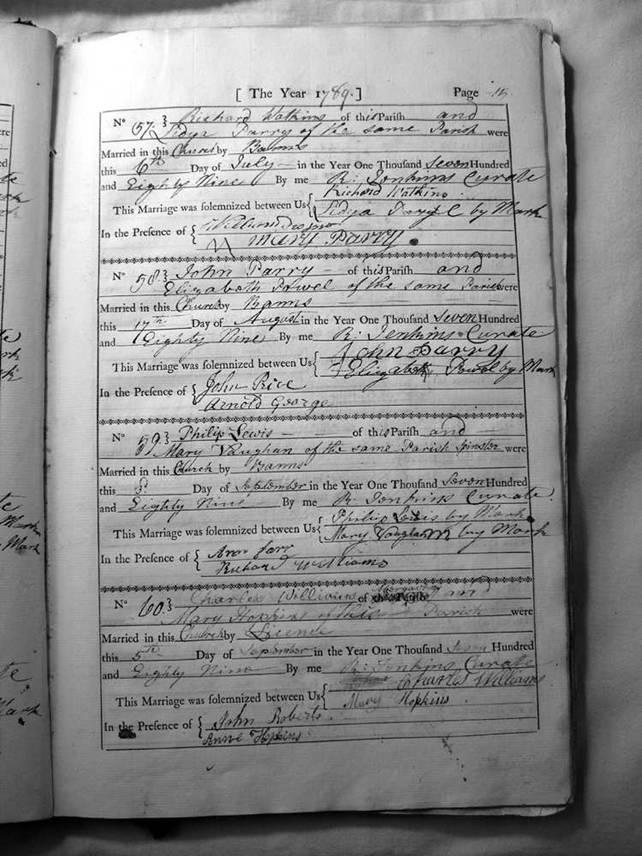 [ The Year 1789. ] Page 15
No 57 } Richard Watkins of this Parish and
Lidya Parry of the same Parish were
Married in this Church by Banns
this 6th Day of July in the Year One Thousand Seven Hundred
and Eighty Nine By me R: Jenkins Curate
This Marriage was solemnized between Us { Richard Watkins
Lidya Parry C by Mark
In the Presence of {
Mary Parry
No 58 } John Parry of this Parish and
Elizabeth Powel of the same Parish were
Married in this Church by Banns
this 17th Day of August in the Year One Thousand Seven Hundred
and Eighty Nine By me R: Jenkins Curate
This Marriage was solemnized between Us { John Parry
Elizabeth Powel by Mark
In the Presence of { John Rice
Arnold George
No 59 } Philip Lewis of this Parish and
Mary Vaughan of the same Parish Spinster were
Married in this Church by Banns
this Day of September in the Year One Thousand Seven Hundred
and Eighty Nine By me R: Jenkins Curate
This Marriage was solemnized between Us { Philip Lewis by Mark
Mary Vaughan by Mark
In the Presence of {
Richard Williams
No 60 } Charles Williams of and
Mary Hopkins of this Parish were
Married in this Church by Licence
this 5th Day of September in the Year One Thousand Seven Hundred
and Eighty Nine By me R: Jenkins Curate
This Marriage was solemnized between Us { Charles Williams
Mary Hopkins
In the Presence of { John Roberts
Anne Hopkins